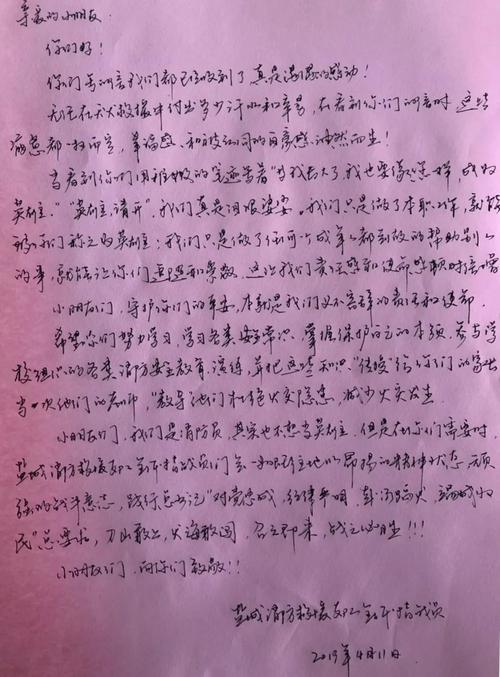 亲爱的小朋友:
你们好!
你们的留言我们都已经收到了,真是满满的感动!
无论在灭火救援中付出多少汗水和辛劳,在看到你们的留言时,这些
疲惫都一扫而空,幸福感、和被认同的自豪感油然而生!
当看到你们用稚嫩的笔迹写着"长大了我也要像您一样,成为
英雄","英雄,请开",我们真是泪眼婆娑。我们只是做了本职工作,就能
被你们称之为英雄;我们只是做了任何一个成年人都到做的帮助别人
的事,就能让你们感恩和崇敬,这让我们责任感和使命感顿时倍增
小朋友们,守护你们的平安,本就是我们义不容辞的责任和使命,
希望你们努力学习,学习各类安全常识,掌握保护自己的本领,参与学
校组织的各类消防安全教育、演练,并把这些知识"传授"给你们的家长
当一次他们的老师,教导他们杜绝火灾隐患,减少火灾发生。
小朋友们,我们是消防员,其实也不想当英雄,但是在你们需要时,
盐城消防救援支队全体指战员们会一如既往地以昂扬的精神状态、顽
强的战斗意志,践行总书记"对党忠诚,纪律严明,赴汤蹈火,竭诚为人
民"总要求,刀山敢上,火海敢闯,召之即来,战之必胜!!!
小朋友们,向你们致敬!!
盐城消防救援支队全体指战员
2019年4月11日